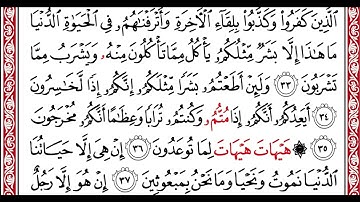 ٱلَّذِينَ كَفَرُوا۟ وَكَذَّبُوا۟ بِلِقَآءِ ٱلْـَٔاخِرَةِ وَأَتْرَفْنَٰهُمْ فِى ٱلْحَيَوٰةِ ٱلدُّنْيَا
مَا هَٰذَآ إِلَّا بَشَرٌ مِّثْلُكُمْ يَأْكُلُ مِمَّا تَأْكُلُونَ مِنْهُ وَيَشْرَبُ مِمَّا
تَشْرَبُونَ ٣٣ وَلَئِنْ أَطَعْتُم بَشَرًا مِّثْلَكُمْ إِنَّكُمْ إِذًا لَّخَٰسِرُونَ
٣٤ أَيَعِدُكُمْ أَنَّكُمْ إِذَا مُتُّمْ وَكُنتُمْ تُرَابًا وَعِظَٰمًا أَنَّكُم مُّخْرَجُونَ
٣٥ ۞ هَيْهَاتَ هَيْهَاتَ لِمَا تُوعَدُونَ ٣٦ إِنْ هِىَ إِلَّا حَيَاتُنَا
ٱلدُّنْيَا نَمُوتُ وَنَحْيَا وَمَا نَحْنُ بِمَبْعُوثِينَ ٣٧ إِنْ هُوَ إِلَّا رَجُلٌ